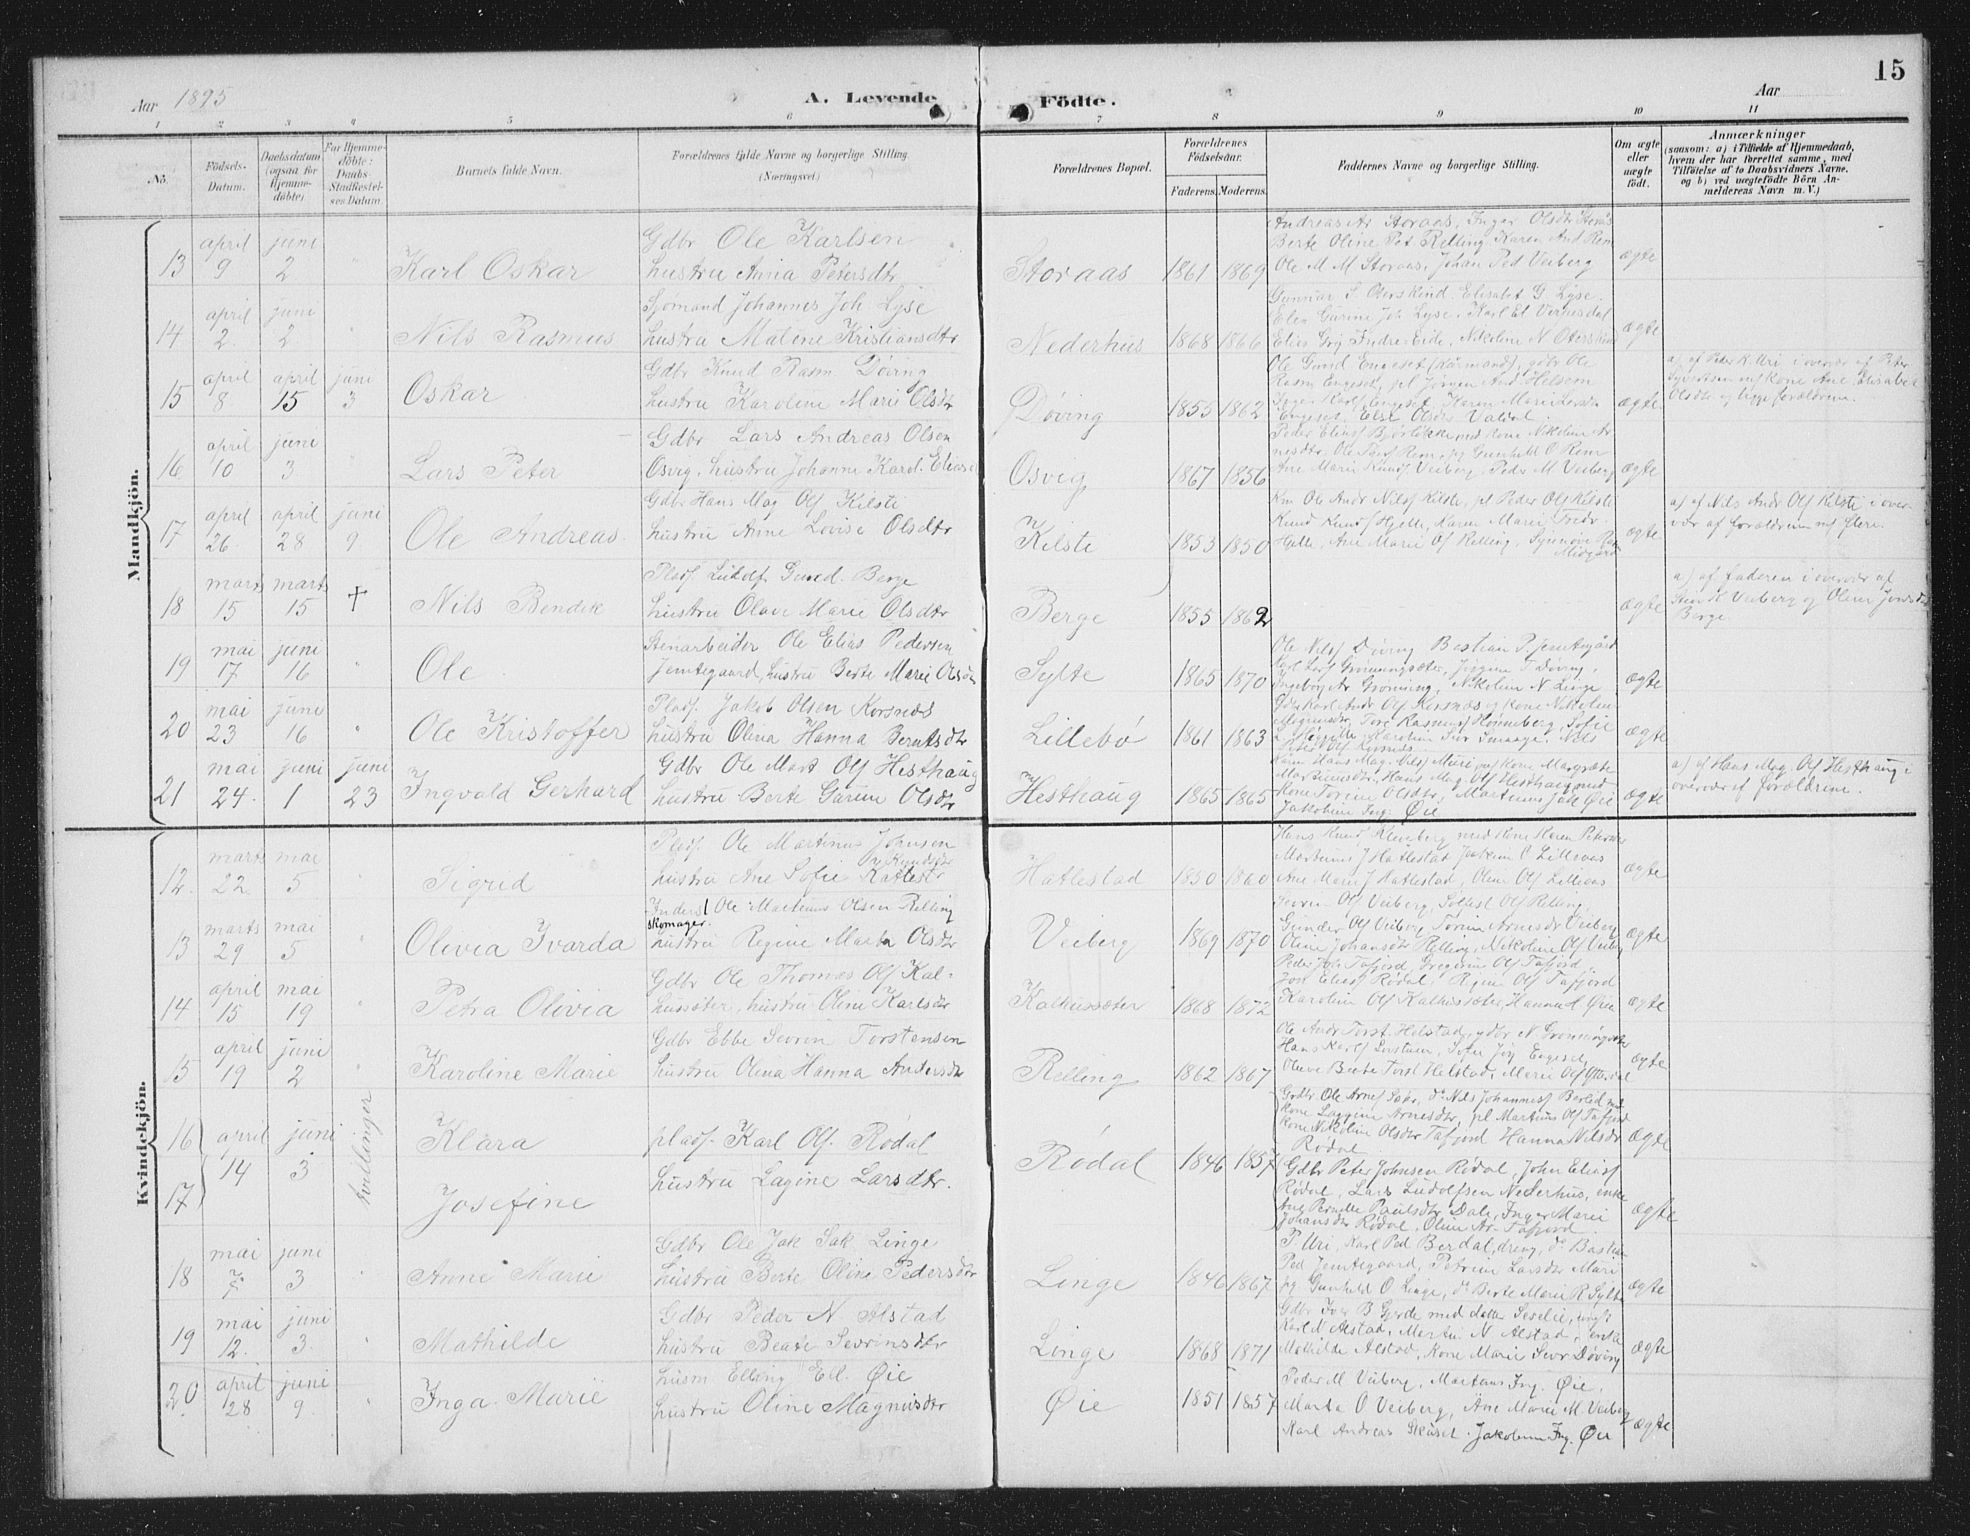 15
Aar 1895
A. Levende
Födte.
Aar
1 2 3 4 5 6 7 8 9 10 11
No.
Födsels-
Datum.
Daabsdatum
(ogsaa for
Hjemme-
döbte)
For Hjemme-
döbte:
Daabs-
Stadfæstel-
ses Datum.
Barnets fulde Navn.
Forældrenes fulde Navne og borgerlige Stilling.
(Næringsvei.)
Forældrenes Bopæl.
Forældrenes
Födselsaar.
Faderens.
Moderens.
Faddernes Navne og borgerlige Stilling.
Om ægte
eller
uægte
födt.
Anmærkninger
(saasom: a) i Tilfælde af Hjemmedaab,
hvem der har forrettet samme, med
Tilföielse af to Daabsvidners Navne.
og b) ved uægtefödte Börn An-
melderens Navn m. V.)
Mandkjön.
13 april 9 juni 2 " Karl Oskar
Gdbr Ole Karlsen
hustru Anna Petersdtr
Storaas 1861 1869
Andreas Ar Storaas, Inger Olsdtr Storaas
Berte Oline Pet Relling Karen And Rem
Ole M M Storaas, Johan Ped Veiberg
ægte
14 april 2 juni 2 " Nils Rasmus
Sjømand Johannes Joh Lyse
hustru Maline Kristiansdtr
Nederhus 1868 1866
Gunnar S Oterskind. Elisabet G Lyse.
Elen Gurine Joh Lyse, Karl El
Nikoline N Oterskind
ægte
15 april 8 april 15 juni 3 Oskar
Gdbr Knud Rasm Døving
hustru Karoline Marie Olsdtr
Døving 1855 1862
Ole Gund Engeset (Kårmand), gdbr Ole
Rasm Engeset, pl Jørgen And Helsem
Karen Marie Larsdtr
Engeset, Else Olsdtr Valdal
ægte
a) af Peder K Uri i overvær af Peter
Syvertsen m/ kone Ane Elisabet
Olsdtr og begge forældrene.
16 april 10 juni 3 " Lars Peter
Gdbr Lars Andreas Olsen
Osvig, hustru Johanne Karol. Eliasd
Osvig 1867 1856
Peder Eliass Bjørlikke med kone Nikoline Ar
nesdtr, Ole Tors Rem, pg Gunhild O Rem
Ane Marie Knuds Veiberg, Peder M Veiberg
ægte
17 april 26 april 28 juni 9 Ole Andreas
Gdbr Hans Mag Ols Kilsti
hustru Anne Lovise Olsdtr
Kilsti 1853 1850
Km Ole Andr Nils Kilsti, pl Peder Ols Kilsti
Knud Knuds Hjelle, Karen Marie Fredr
Hjelle, Ane Marie Ols Relling, Synnøve
Midgard
ægte
a) af Nils Andr Ols Kilsti i over-
vær af forældrene m/ flere.
18 marts 15 marts 15 † Nils Bendik
Plads. Ludolf Gund. Berge
hustru Olave Marie Olsdtr
Berge 1855 1862
ægte
a) af faderen i overvær af
Veiberg og Oline Jonsdtr
Berge
19 mai 17 juni 16 " Ole
Stenarbeider Ole Elias Pedersen
Jemtegaard, hustru Berte Marie Olsdtr
Sylte 1865 1870
Ole Nils Døving Bastian P. Jemtegård
Karl Lars Grønningsæter, Jørgine T Døving,
Ingeborg Ar Grønning, Nikoline N Linge
ægte
20 mai 23 juni 16 " Ole Kristoffer
Plads. Jakob Olsen Korsnæs
hustru Olina Hanna Berntsdtr
Lillebø 1861 1863
Gdbr Karl Andr Ols Korsnæs og kone Nikoline
Tore Rasmus Hønneberg, Sofie
Karoline Sivr Smaage, Nils
Peter Ols Korsnes
ægte
21 mai 24 juni 1 juni 23 Ingvald Gerhard
Gdbr Ole Mart Ols Hesthaug
hustru Berte Gurine Olsdtr
Hesthaug 1865 1865
Hans Mag. Nils Muri m/ kone Margrete
Martinusdtr, Hans Mag Ols Hesthaug med
kone Torine Olsdtr, Martinus Jak Øie
Jakobine Ing. Øie
ægte
a) af Hans Mag Ols Hesthaug i
overvær af forældrene.
Kvindekjön.
12 marts 22 mai 5 " Sigrid
Plads. Ole Martinus Johnsen
hustru Ane Sofie Knudsdtr
Hatlestad 1850 1860
Hans Knud Kleveberg med kone Karen Petersdtr
Martinus J Hatlestad Joakim C Lillevas
Ane Marie J Hatlestad, Oline Ols Lillevas
ægte
13 marts 29 mai 5 Olivia Ivarda
Inders Ole Martinus Olsen Relling
skomager.
hustru Regine Marta Olsdtr
Veiberg 1869 1870
Iver Ols Veiberg, Solfest Ols Relling,
Gunder Ols Veiberg Torine Arnesdtr Veiberg
Oline Johansdtr Relling, Nikoline Ols Veiberg
ægte
14 april 15 mai 19 " Petra Olivia
Gdbr Ole Thomas Ols Kal-
hussæter, hustru Oline Karlsdtr
Kalhussæter 1868 1872
Peder Joh Tafjord, Gregorius Ols Tafjord
Jon Elias Rødal, Regine Ols Tafjord
Karoline Ols Kalhussæter, Hanna A Øie
ægte
15 april 19 juni 2 " Karoline Marie
Gdbr Ebbe Sevrin Torstensen
hustru Olina Hanna Andersdtr
Relling 1862 1867
Ole Andr Torst Helstad, gdbr N Grønningsæter
Hans Karls Sofie Jog Engeset,
Olave Berte Torst Helstad, Marie Ols Ytterdal
ægte
16 april 14 juni 3 tvillinger Klara
plads. Karl Ols. Rødal
hustru Lagine Larsdtr.
Rødal 1846 1857
Grdbr Ole Arnes Sakr, do Nils Johannes Berlid med
kone Laggine Arnesdtr, pl Martinus Ols Tafjord
kone Nikoline Olsdtr Tafjord Hanna Nilsdtr
Rødal
ægte
17 Josefine
Gdbr Peter Johnsen Rødal, John Elias
Rødal, Lars Ludolfsen Nederhus, enke
Ane Pernille Paulsdtr Dale, Inger Marie
Johansdtr Rødal, Oline Ar Tafjord
ægte
18 mai 7 juni 3 " Anne Marie
Gdbr Ole Jak Sak. Linge
hustru Berte Oline Pedersdtr
Linge 1846 1867
P. Uri, Karl Ped Berdal, dreng, do Bastian
Ped Jemtegaard, Petrine Larsdtr Muri
pg Gunhild O Linge, do Berte Marie R Sylte
ægte
19 mai 12 juni 3 " Mathilde
Gdbr Peder N Alstad
hustru Beate Sevrinsdtr
Linge 1868 1871
Gdbr Iver B Gjerde med datter Severine, ungk
Karl N Alstad, Martin N Alstad, enke
Mathilde Alstad, kone Marie Sevr Døving
ægte
20 april 28 juni 9 " Inga Marie
husm Elling Ell. Øie
hustru Oline Magnusdtr
Øie 1851 1857
Peder M Veiberg, Martinus Ing. Øie,
Marta O Veiberg, Ane Marie M. Veiberg
Karl Andreas Skaset. Jakobine Ing. Øie
ægte